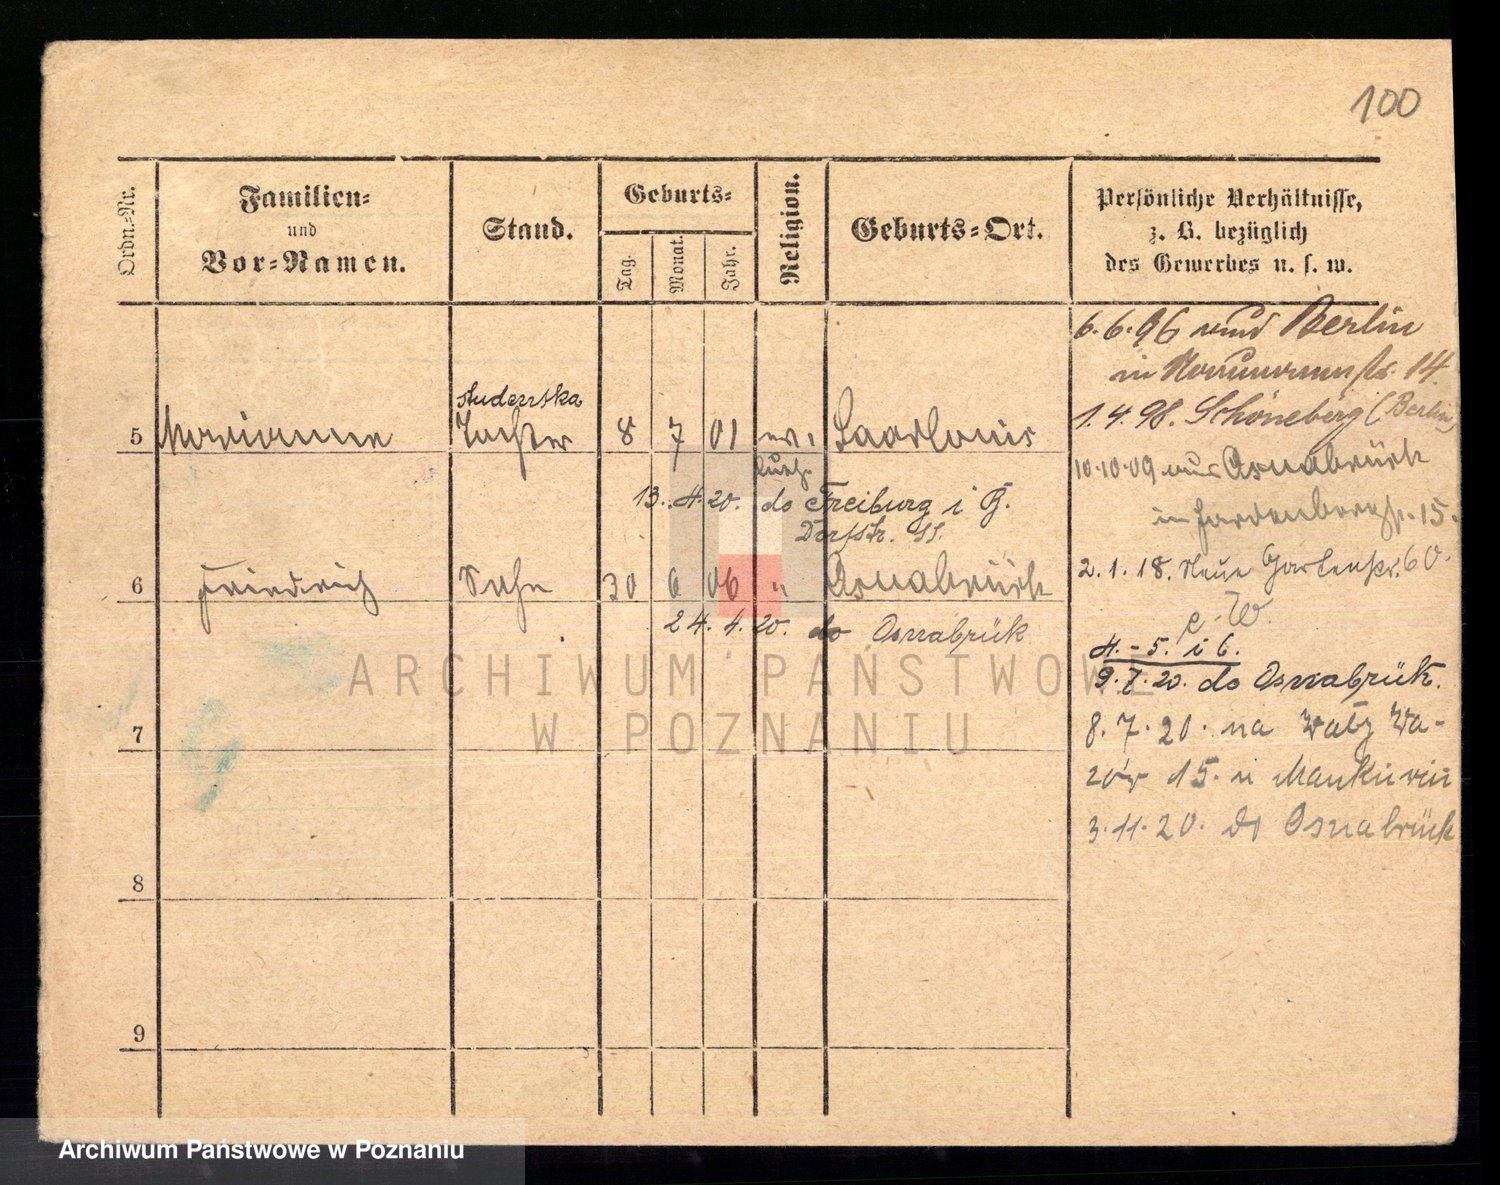 100
Ordn.-Nr.
Familien-
und
Vor-Namen.
Stand.
Geburts-
Tag.
Monat.
Jahr.
Religion.
Geburts-Ort.
Persönliche Verhältnisse,
z. B. bezüglich
des Gewerbes u. s. w.
6.6.96 nach Berlin
in 14.
1.4.98. Schöneberg (Berlin)
studentka
5 Marianne Tochter 8 7 01 ev. Saarlouis
luth.
10.10.09 aus Osnabrück
in 15.
13. 4. 20. do Freiburg i B.
Dorfstr. 11.
2.1.18. Neue Gartenstr. 60.
6 Friedrich Sohn 30 6 06 " Osnabrück
e. W.
24. 4. 20. do Osnabrük
4. - 5. i 6.
9.7.20. do Osnabrük.
ARCHIWUM PAŃSTWOWE
W POZNANIU
7
8.7.20. na Wały Wa-
zów 15. u
3.11.20. do Osnabrück
8
9
Archiwum Państwowe w Poznaniu